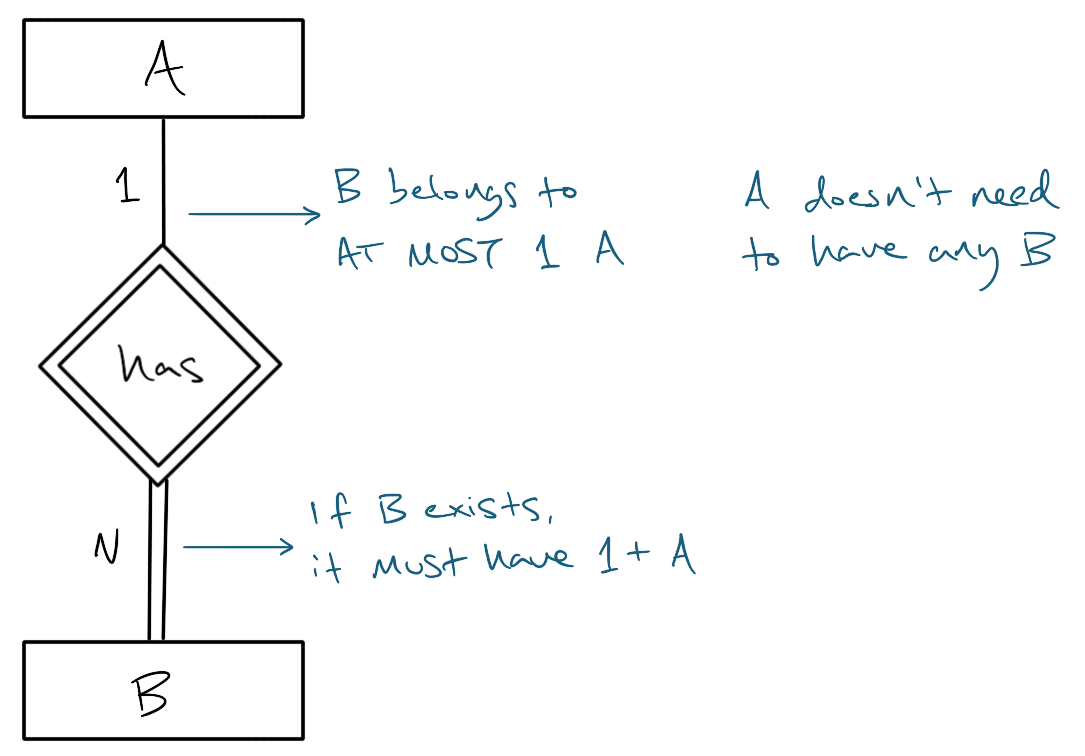 A
1
B belongs to
AT MOST 1 A
A doesn't need
to have any B
has
N
If B exists,
it must have 1+ A
B